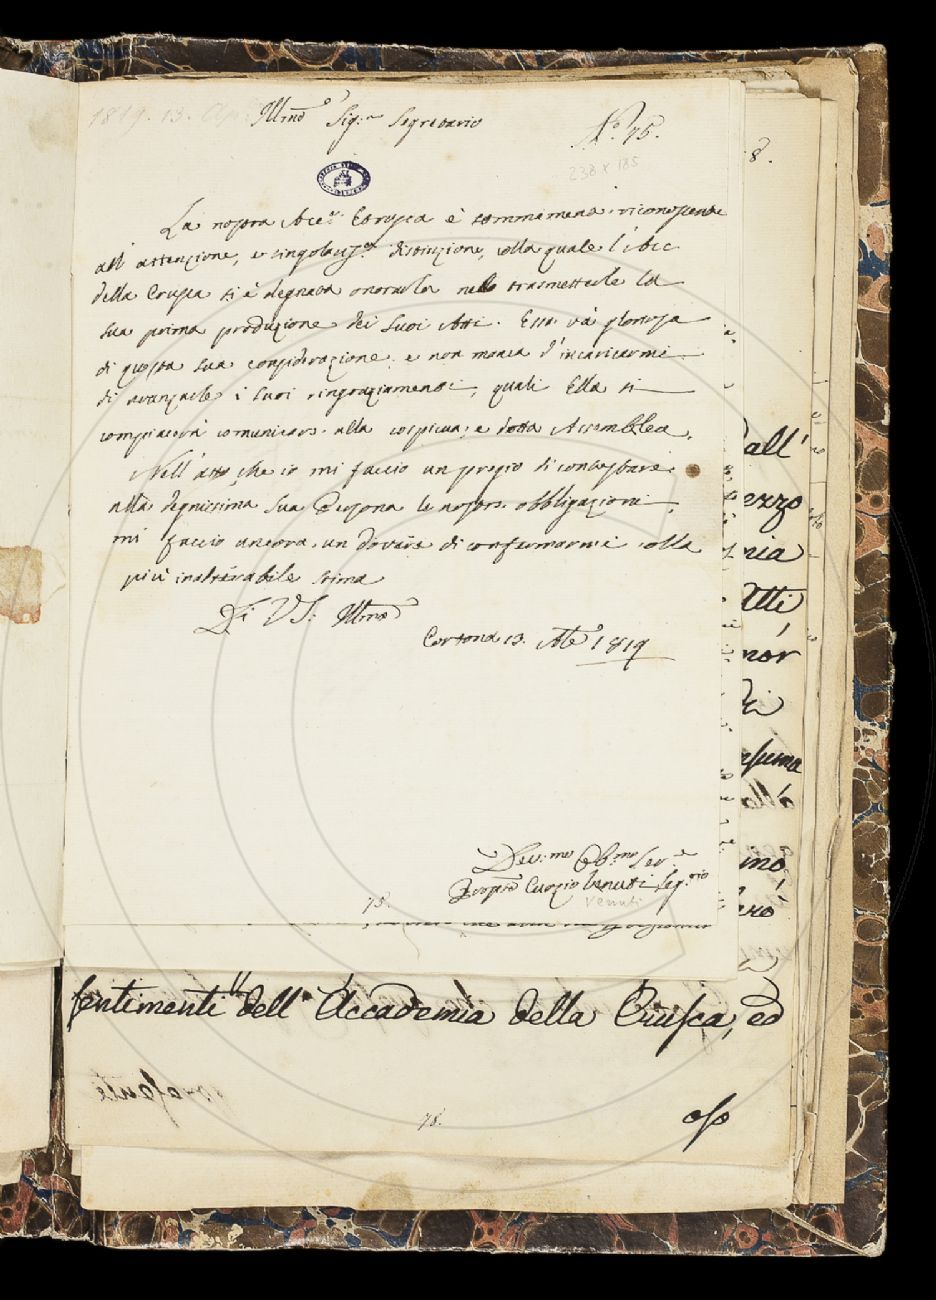 1819. 13. Ap
Illmo Sig.r Segretario
No. 75.
8.
238 x 185
La nostra Acc. Etrusca è sommamente riconoscente
all' attenzione, e singolariss. distinzione, colla quale l'Acc
della Crusca si è degnata onorarla nel trasmetterle la
sua prima produzione dei suoi Atti. Essa và gloriosa
di questa sua considerazione, e non manca d'incaricarmi
di avanzarle i suoi ringraziamenti, quali Ella si
compiacerà comunicare alla cospicua, e dotta Assemblea.
Nell' atto, che io mi faccio un pregio di contestare
alla degnissima sua Persona le nostre obbligazioni,
mi faccio ancora un dovere di confermarmi colla
più inalterabile stima
Di VS. Illma
Cortona 13. Ale 1819
Dev.mo Obb.mo Ser.e
Curzio Venuti Seg.rio
Venuti
75.
dall'
ezzo
mia
Atti
nór
Di
mo
ero
sentimenti dell' Accademia della Crusca, ed
78.